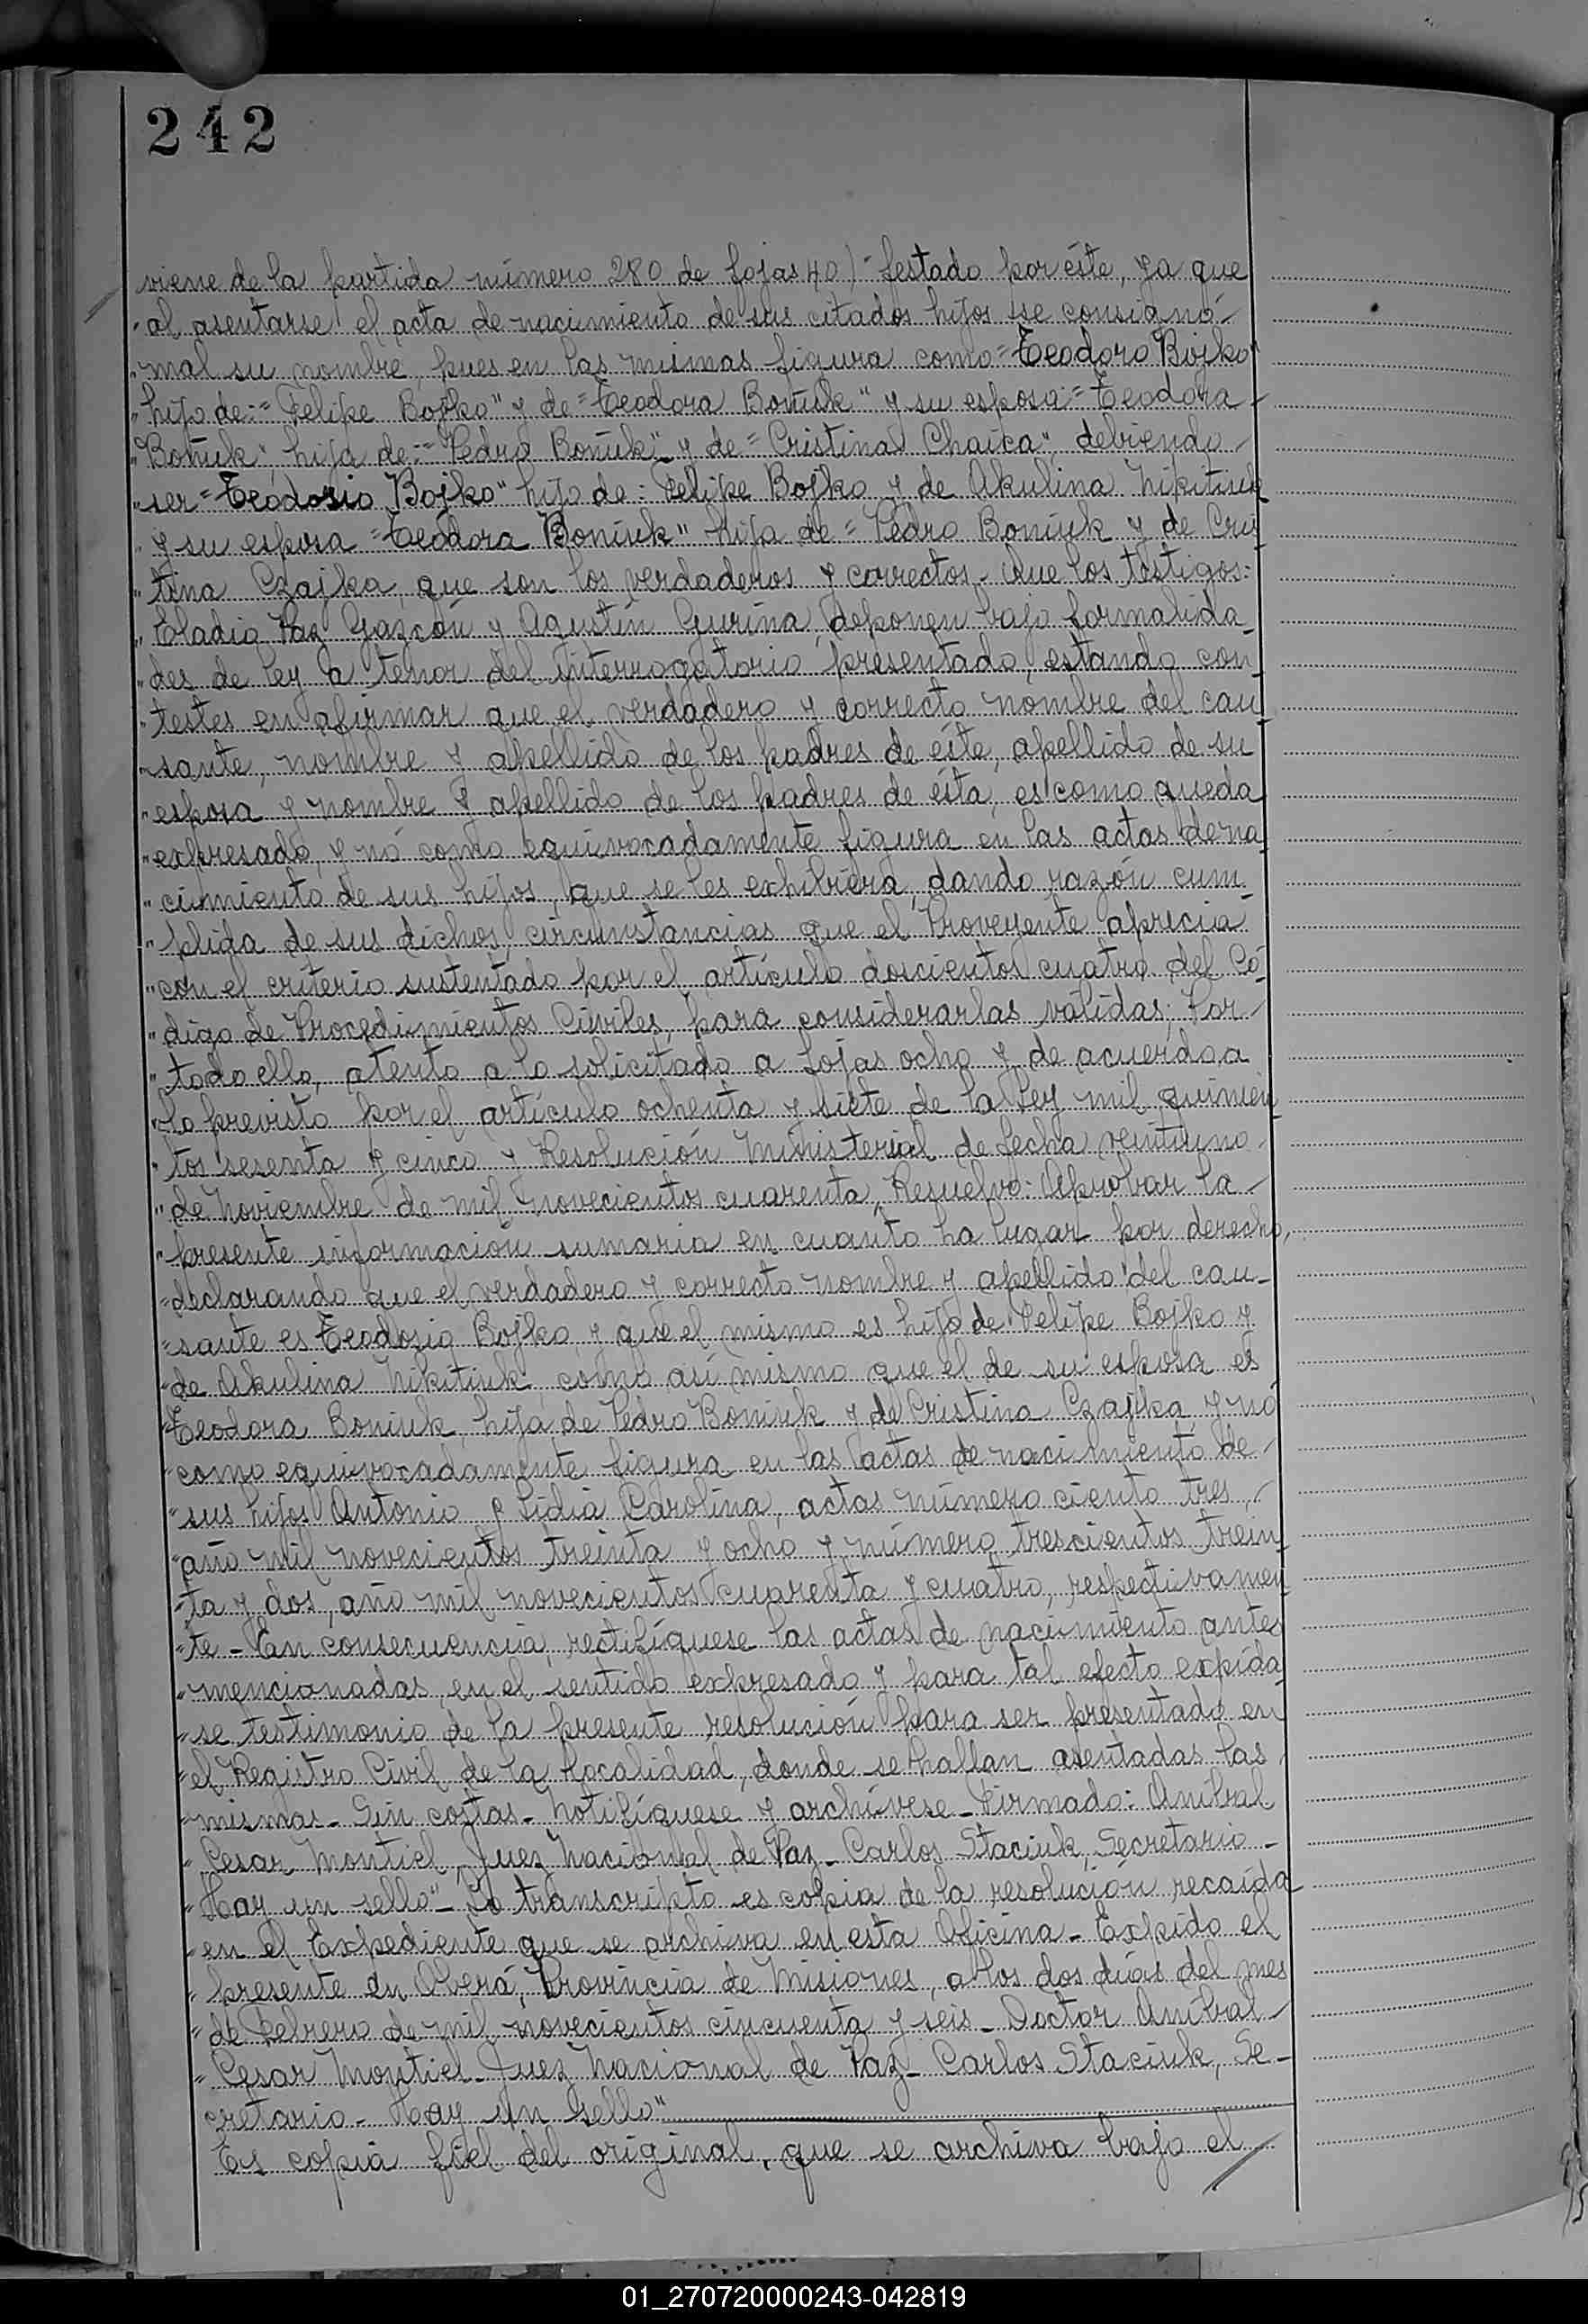 242
viene de la partida número 280 de fojas 40)- festado por éste, ya que
"al asentarse el acta de nacimiento de sus citados hijos se consignó-
"mal su nombre, pues en las mismas figura como="Teodoro Bojko"
"hijo de:="Felipe Bojko" y de="Teodora Boñuk" y su esposa="Teodora-
"Boñuk" hija de:="Pedro Boñuk" y de="Cristina Chaica", debiendo-
"ser="Teodosio Bojko" hijo de: Felipe Bojko y de Akulina Nikitiuk
"y su esposa="Teodora Boniuk" hija de="Pedro Boniuk y de Cris
"tina Czajka, que son los verdaderos y correctos- Que los testigos:
"Eladio Paz Gazcón y Agustín Gurina, deponen bajo formalida-
"des de ley a tenor del interrogatorio presentado, estando con
"testes en afirmar que el verdadero y correcto nombre del cau
"sante, nombre y apellido de los padres de éste, apellido de su
"esposa y nombre y apellido de los padres de ésta, es como queda
"expresado, y nó como equivocadamente figura en las actas de na
"cimiento de sus hijos, que se les exhibiera, dando razón cum-
"plida de sus dichos, circunstancias que el Proveyente aprecia
"con el criterio sustentado por el artículo doscientos cuatro del Có
"digo de Procedimientos Civiles, para considerarlas válidas; Por-
"todo ello, atento a lo solicitado a fojas ocho y de acuerdo a
"lo previsto por el artículo ochenta y siete de la Ley mil quinien
"tos sesenta y cinco y Resolución Ministerial de fecha veintiuno-
"de Noviembre de mil novecientos cuarenta, Resuelvo: Aprobar la-
"presente información sumaria en cuanto ha lugar por derecho,
"declarando que el verdadero y correcto nombre y apellido del cau-
"sante es Teodosio Bojko y que el mismo es hijo de Felipe Bojko y
"de Akulina Nikitiuk como asi mismo que el de su esposa es
"Teodora Boniuk, hija de Pedro Boniuk y de Cristina Czajka y nó
"como equivocadamente figura en las actas de nacimiento de-
"sus hijos Antonio y Lidia Carolina, actas número ciento tres,-
"año mil novecientos treinta y ocho y número trescientos trein
"ta y dos, año mil novecientos cuarenta y cuatro, respectivamen
"te- En consecuencia, rectifíquese las actas de nacimiento antes
"mencionadas, en el sentido expresado y para tal efecto expída
"se testimonio de la presente resolución para ser presentado en
"el Registro Civil de la localidad, donde se hallan asentadas las
"mismas- Sin costas- Notifíquese y archívese- Firmado: Anibal
"Cesar Montiel, Juez Nacional de Paz- Carlos Staciuk, Secretario-
"Hay un sello"- Lo transcripto es copia de la resolución recaída
"en el Expediente que se archiva en esta Oficina- Expido el
"presente en Oberá, Provincia de Misiones, a los dos días del mes
"de Febrero de mil novecientos cincuenta y seis- Doctor Anibal-
"Cesar Montiel- Juez Nacional de Paz- Carlos Staciuk, Se-
cretario- Hay un sello"
Es copia fiel del original, que se archiva bajo el
01_270720000243-042819